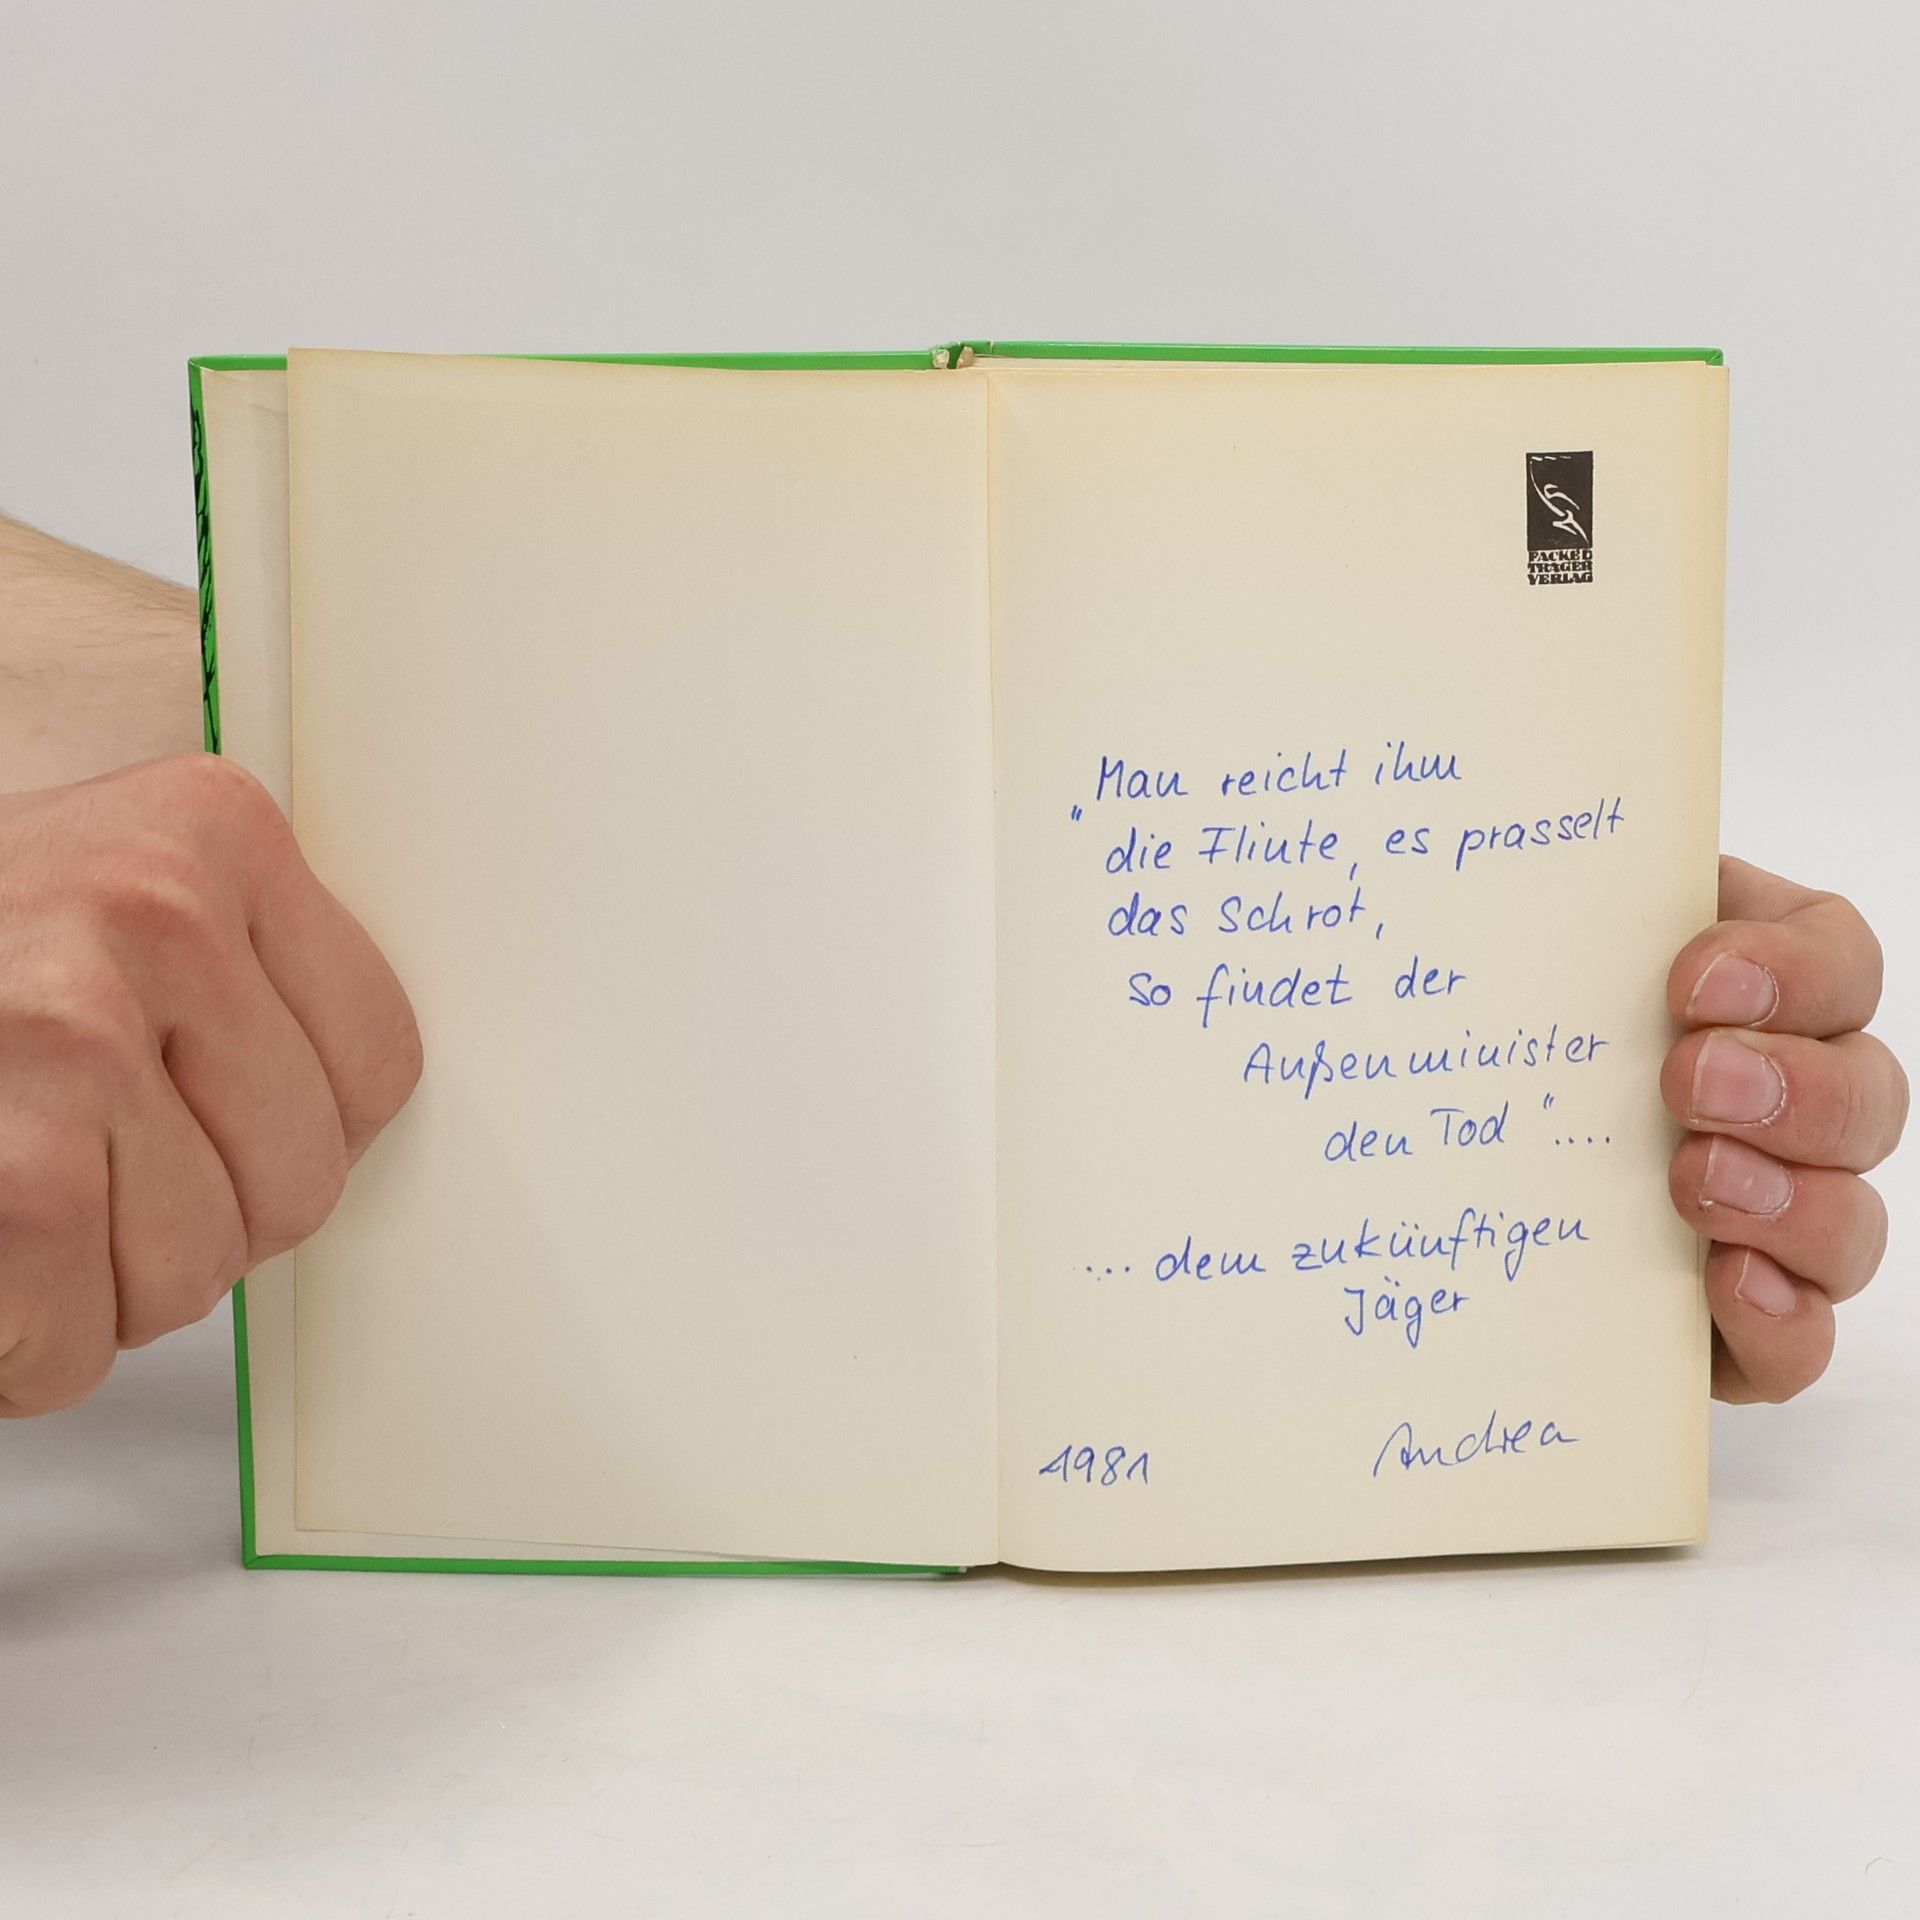 FACKEL
TRÄGER
VERLAG
"Man reicht ihm
die Flinte, es prasselt
das Schrot,
so findet der
Außenminister
den Tod"....
... dem zukünftigen
Jäger
1981 Andrea